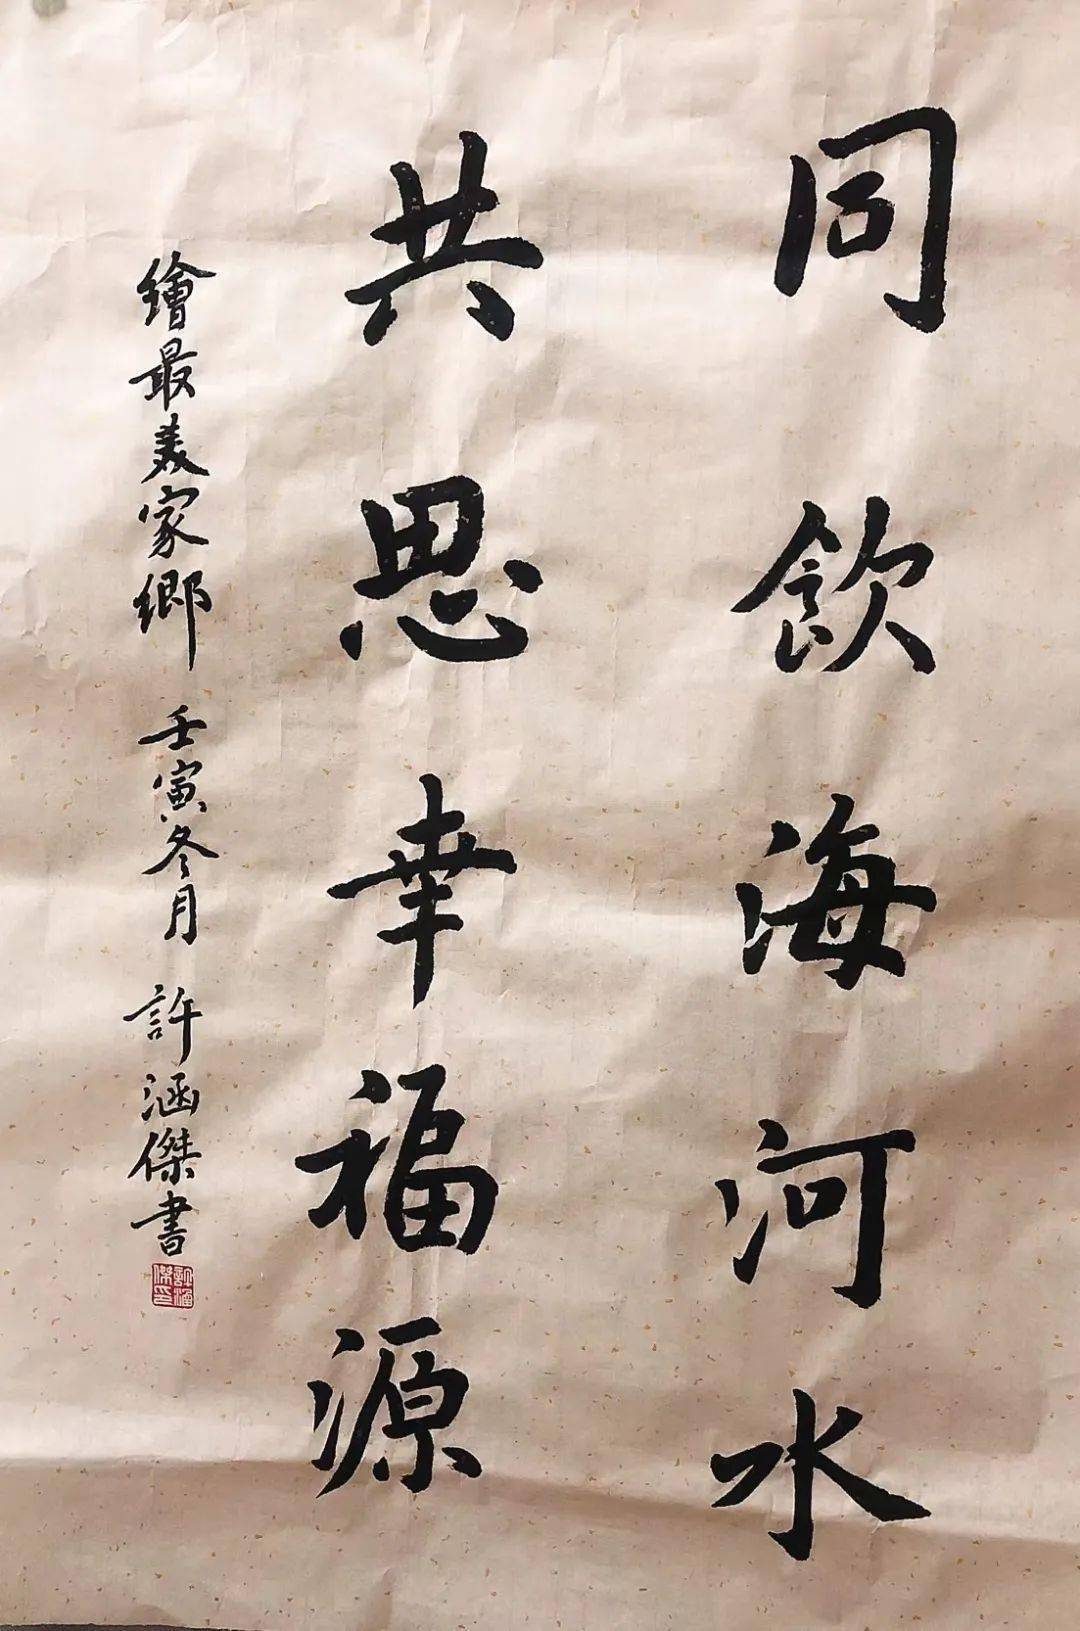 同飲海河水
共思幸福源
繪最美家鄉 壬寅冬月 許涵傑書
許涵傑印